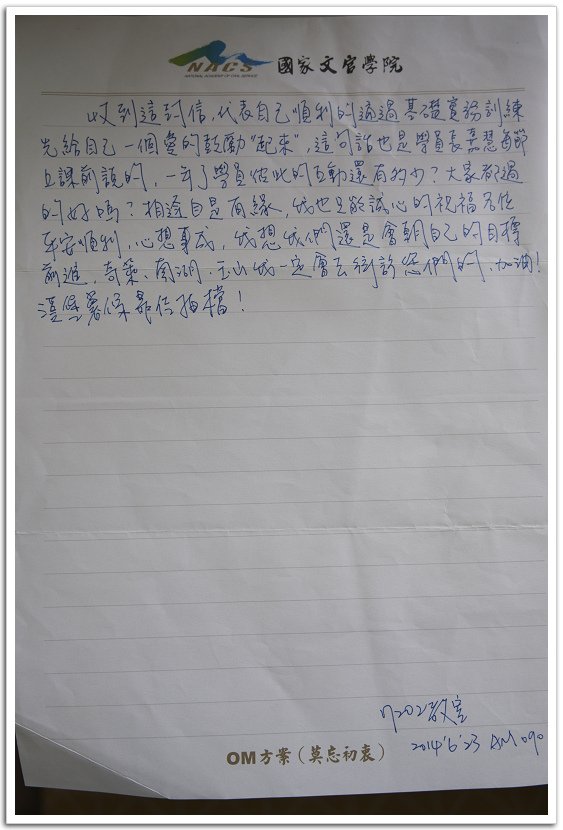 NACS 國家文官學院
NATIONAL ACADEMY OF CIVIL SERVICE
收到這封信,代表自己順利的通過基礎實務訓練
先給自己一個愛的鼓勵"起來",這句話也是學員長嘉慧每節
上課前說的,一年了學員彼此的互動還有多少?大家都過
的好嗎?相逢自是有緣,我也只能誠心的祝福各位
平安順利,心想事成,我想我們還是會朝自己的目標
前進,奇萊、南湖、玉山我一定會去術訪您們的,加油!
拍檔!
202教室
2014'6'23 AM
OM方案(莫忘初衷)